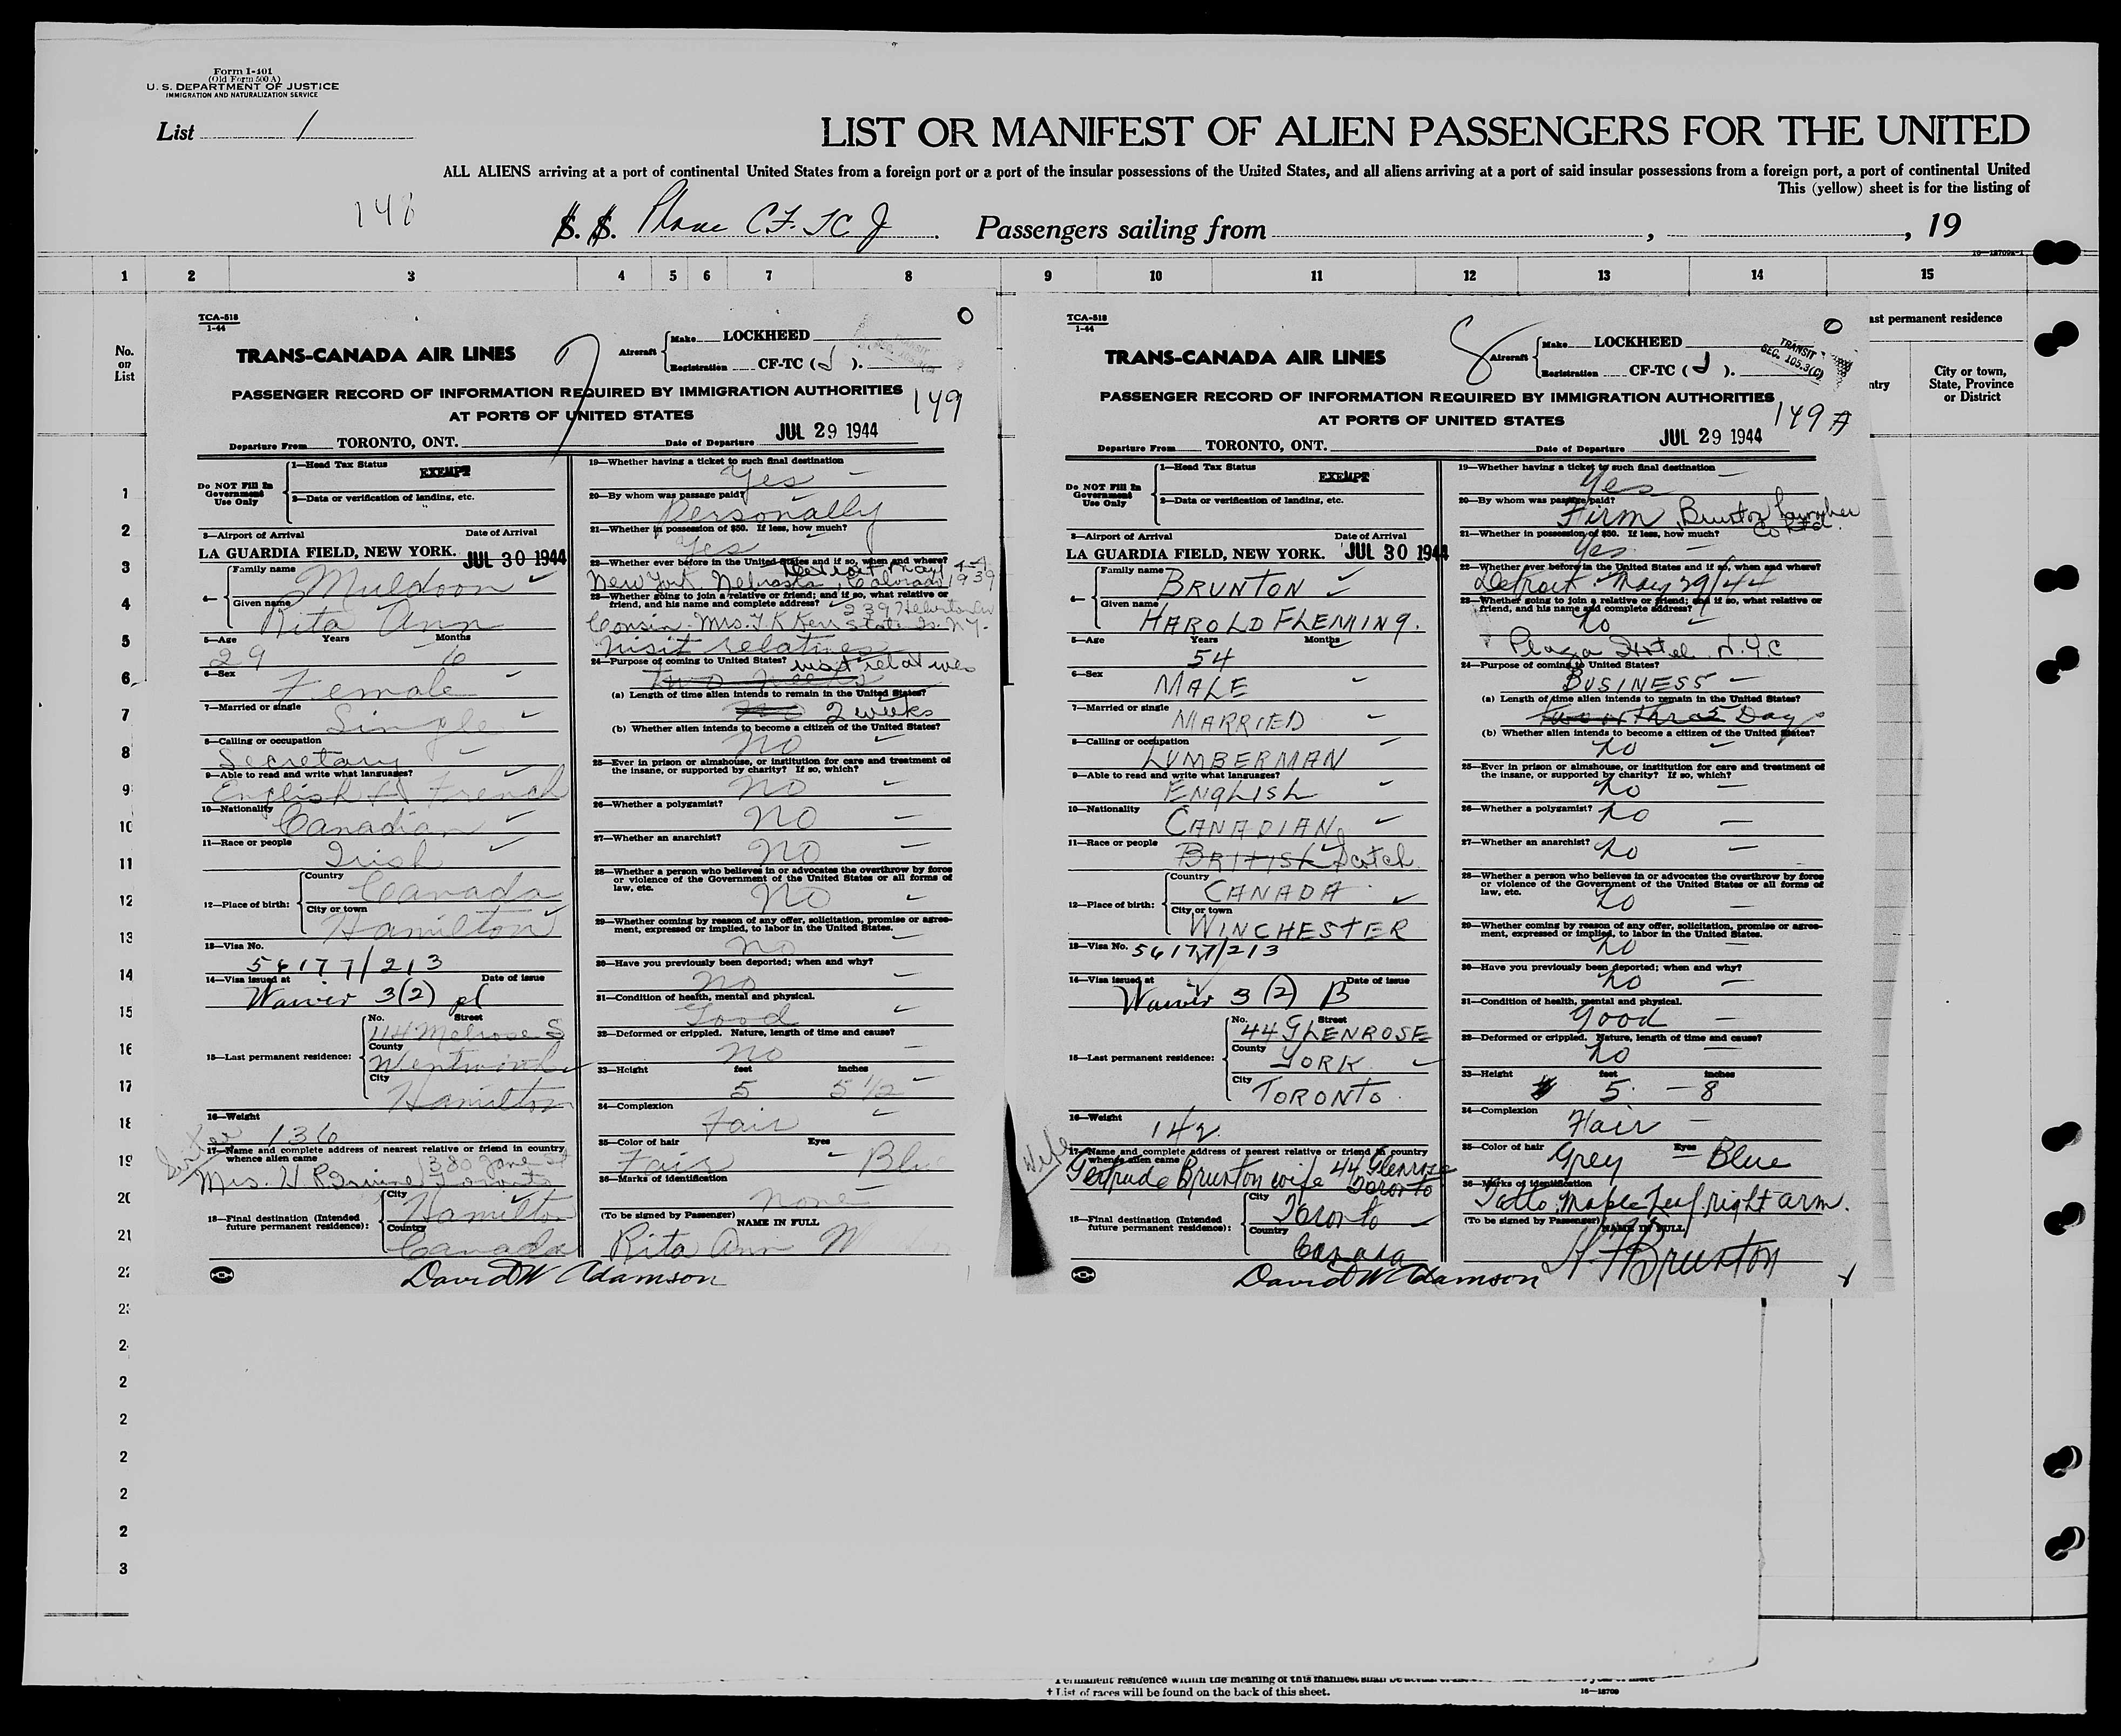 Form I-401
(Old Form 500 A)
U. S. DEPARTMENT OF JUSTICE
IMMIGRATION AND NATURALIZATION SERVICE
List 1
LIST OR MANIFEST OF ALIEN PASSENGERS FOR THE UNITED
ALL ALIENS arriving at a port of continental United States from a foreign port or a port of the insular possessions of the United States, and all aliens arriving at a port of said insular possessions from a foreign port, a port of continental United
This (yellow) sheet is for the listing of
148
S. S. Plane CF. TC J. Passengers sailing from , , 19
1 2 3 4 5 6 7 8 9 10 11 12 13 14 15
No.
on
List
ast permanent residence
ntry
City or town,
State, Province
or District
TCA-518
1-44
TRANS-CANADA AIR LINES
7
Aircraft
Make LOCKHEED
Registration CF-TC (J).
PASSENGER RECORD OF INFORMATION REQUIRED BY IMMIGRATION AUTHORITIES
AT PORTS OF UNITED STATES
149
Departure From TORONTO, ONT. Date of Departure JUL 29 1944
Do NOT Fill In
Government
Use Only
1—Head Tax Status EXEMPT
2—Data or verification of landing, etc.
3—Airport of Arrival Date of Arrival
LA GUARDIA FIELD, NEW YORK. JUL 30 1944
4—
Family name Muldoon
Given name Rita Ann
5—Age Years Months
29 6
6—Sex
Female
7—Married or single
Single
8—Calling or occupation
Secretary
9—Able to read and write what languages?
English & French
10—Nationality
Canadian
11—Race or people
Irish
12—Place of birth:
Country
Canada
City or town
Hamilton
13—Visa No.
56177/213
14—Visa issued at Date of issue
Waiver 3(2)
15—Last permanent residence:
No. Street
114 Melrose S
County
Wentworth
City
Hamilton
16—Weight
136
17—Name and complete address of nearest relative or friend in country
whence alien came
Sister
380 Jane St
Mrs. H. P. Toronto
18—Final destination (Intended
future permanent residence):
City
Hamilton
Country
Canada
David W Adamson
19—Whether having a ticket to such final destination
Yes
20—By whom was passage paid?
Personally
21—Whether in possession of $50. If less, how much?
Yes
22—Whether ever before in the United States and if so, when and where?
Detroit May 44
New York Nebraska Colorado 1939
23—Whether going to join a relative or friend; and if so, what relative or
friend, and his name and complete address?
239
Cousin Mrs. T. K Kerr State Is. N.Y.
Visit relatives
24—Purpose of coming to United States? visit relatives
Two weeks
(a) Length of time alien intends to remain in the United States?
No 2 weeks
(b) Whether alien intends to become a citizen of the United States?
No
25—Ever in prison or almshouse, or institution for care and treatment of
the insane, or supported by charity? If so, which?
No
26—Whether a polygamist?
No
27—Whether an anarchist?
No
28—Whether a person who believes in or advocates the overthrow by force
or violence of the Government of the United States or all forms of
law, etc.
No
29—Whether coming by reason of any offer, solicitation, promise or agree-
ment, expressed or implied, to labor in the United States.
No
30—Have you previously been deported; when and why?
No
31—Condition of health, mental and physical.
Good
32—Deformed or crippled. Nature, length of time and cause?
No
33—Height feet inches
5 5 1/2
34—Complexion
Fair
35—Color of hair Eyes
Fair Blu
36—Marks of identification
None
(To be signed by Passenger) NAME IN FULL
Rita Ann M
TCA-518
1-44
TRANS-CANADA AIR LINES
8
Aircraft
Make LOCKHEED
Registration CF-TC (J).
TRANSIT
SEC. 105.3(C)
PASSENGER RECORD OF INFORMATION REQUIRED BY IMMIGRATION AUTHORITIES
AT PORTS OF UNITED STATES
149 A
Departure From TORONTO, ONT. Date of Departure JUL 29 1944
Do NOT Fill In
Government
Use Only
1—Head Tax Status EXEMPT
2—Data or verification of landing, etc.
3—Airport of Arrival Date of Arrival
LA GUARDIA FIELD, NEW YORK. JUL 30 1944
4—
Family name BRUNTON
Given name HAROLD FLEMING.
5—Age Years Months
54
6—Sex
MALE
7—Married or single
MARRIED
8—Calling or occupation
LUMBERMAN
9—Able to read and write what languages?
ENGLISH
10—Nationality
CANADIAN
11—Race or people
BRITISH Scotch
12—Place of birth:
Country
CANADA
City or town
WINCHESTER
13—Visa No. 56177/213
14—Visa issued at Date of issue
Waiver 3 (2) B
15—Last permanent residence:
No. Street
44 GLENROSE
County
YORK
City
TORONTO
16—Weight
142
17—Name and complete address of nearest relative or friend in country
whence alien came
Wife
Gertrude Brunton wife 44 Glenrose
Toronto
18—Final destination (Intended
future permanent residence):
City
Toronto
Country
Canada
David W Adamson
19—Whether having a ticket to such final destination
Yes
20—By whom was passage paid?
Firm Brunton Lumber
Co Ltd.
21—Whether in possession of $50. If less, how much?
Yes
22—Whether ever before in the United States and if so, when and where?
Detroit May 29/44
23—Whether going to join a relative or friend; and if so, what relative or
friend, and his name and complete address?
No
Plaza Hotel N.Y.C
24—Purpose of coming to United States?
BUSINESS
(a) Length of time alien intends to remain in the United States?
Two or three Days
(b) Whether alien intends to become a citizen of the United States?
No
25—Ever in prison or almshouse, or institution for care and treatment of
the insane, or supported by charity? If so, which?
No
26—Whether a polygamist?
No
27—Whether an anarchist?
No
28—Whether a person who believes in or advocates the overthrow by force
or violence of the Government of the United States or all forms of
law, etc.
No
29—Whether coming by reason of any offer, solicitation, promise or agree-
ment, expressed or implied, to labor in the United States.
No
30—Have you previously been deported; when and why?
No
31—Condition of health, mental and physical.
Good
32—Deformed or crippled. Nature, length of time and cause?
No
33—Height feet inches
5 - 8
34—Complexion
Fair
35—Color of hair Eyes
Grey Blue
36—Marks of identification
Tatto Maple Leaf right arm.
(To be signed by Passenger) NAME IN FULL
H. F. Brunton
† List of races will be found on the back of this sheet.
16—18709